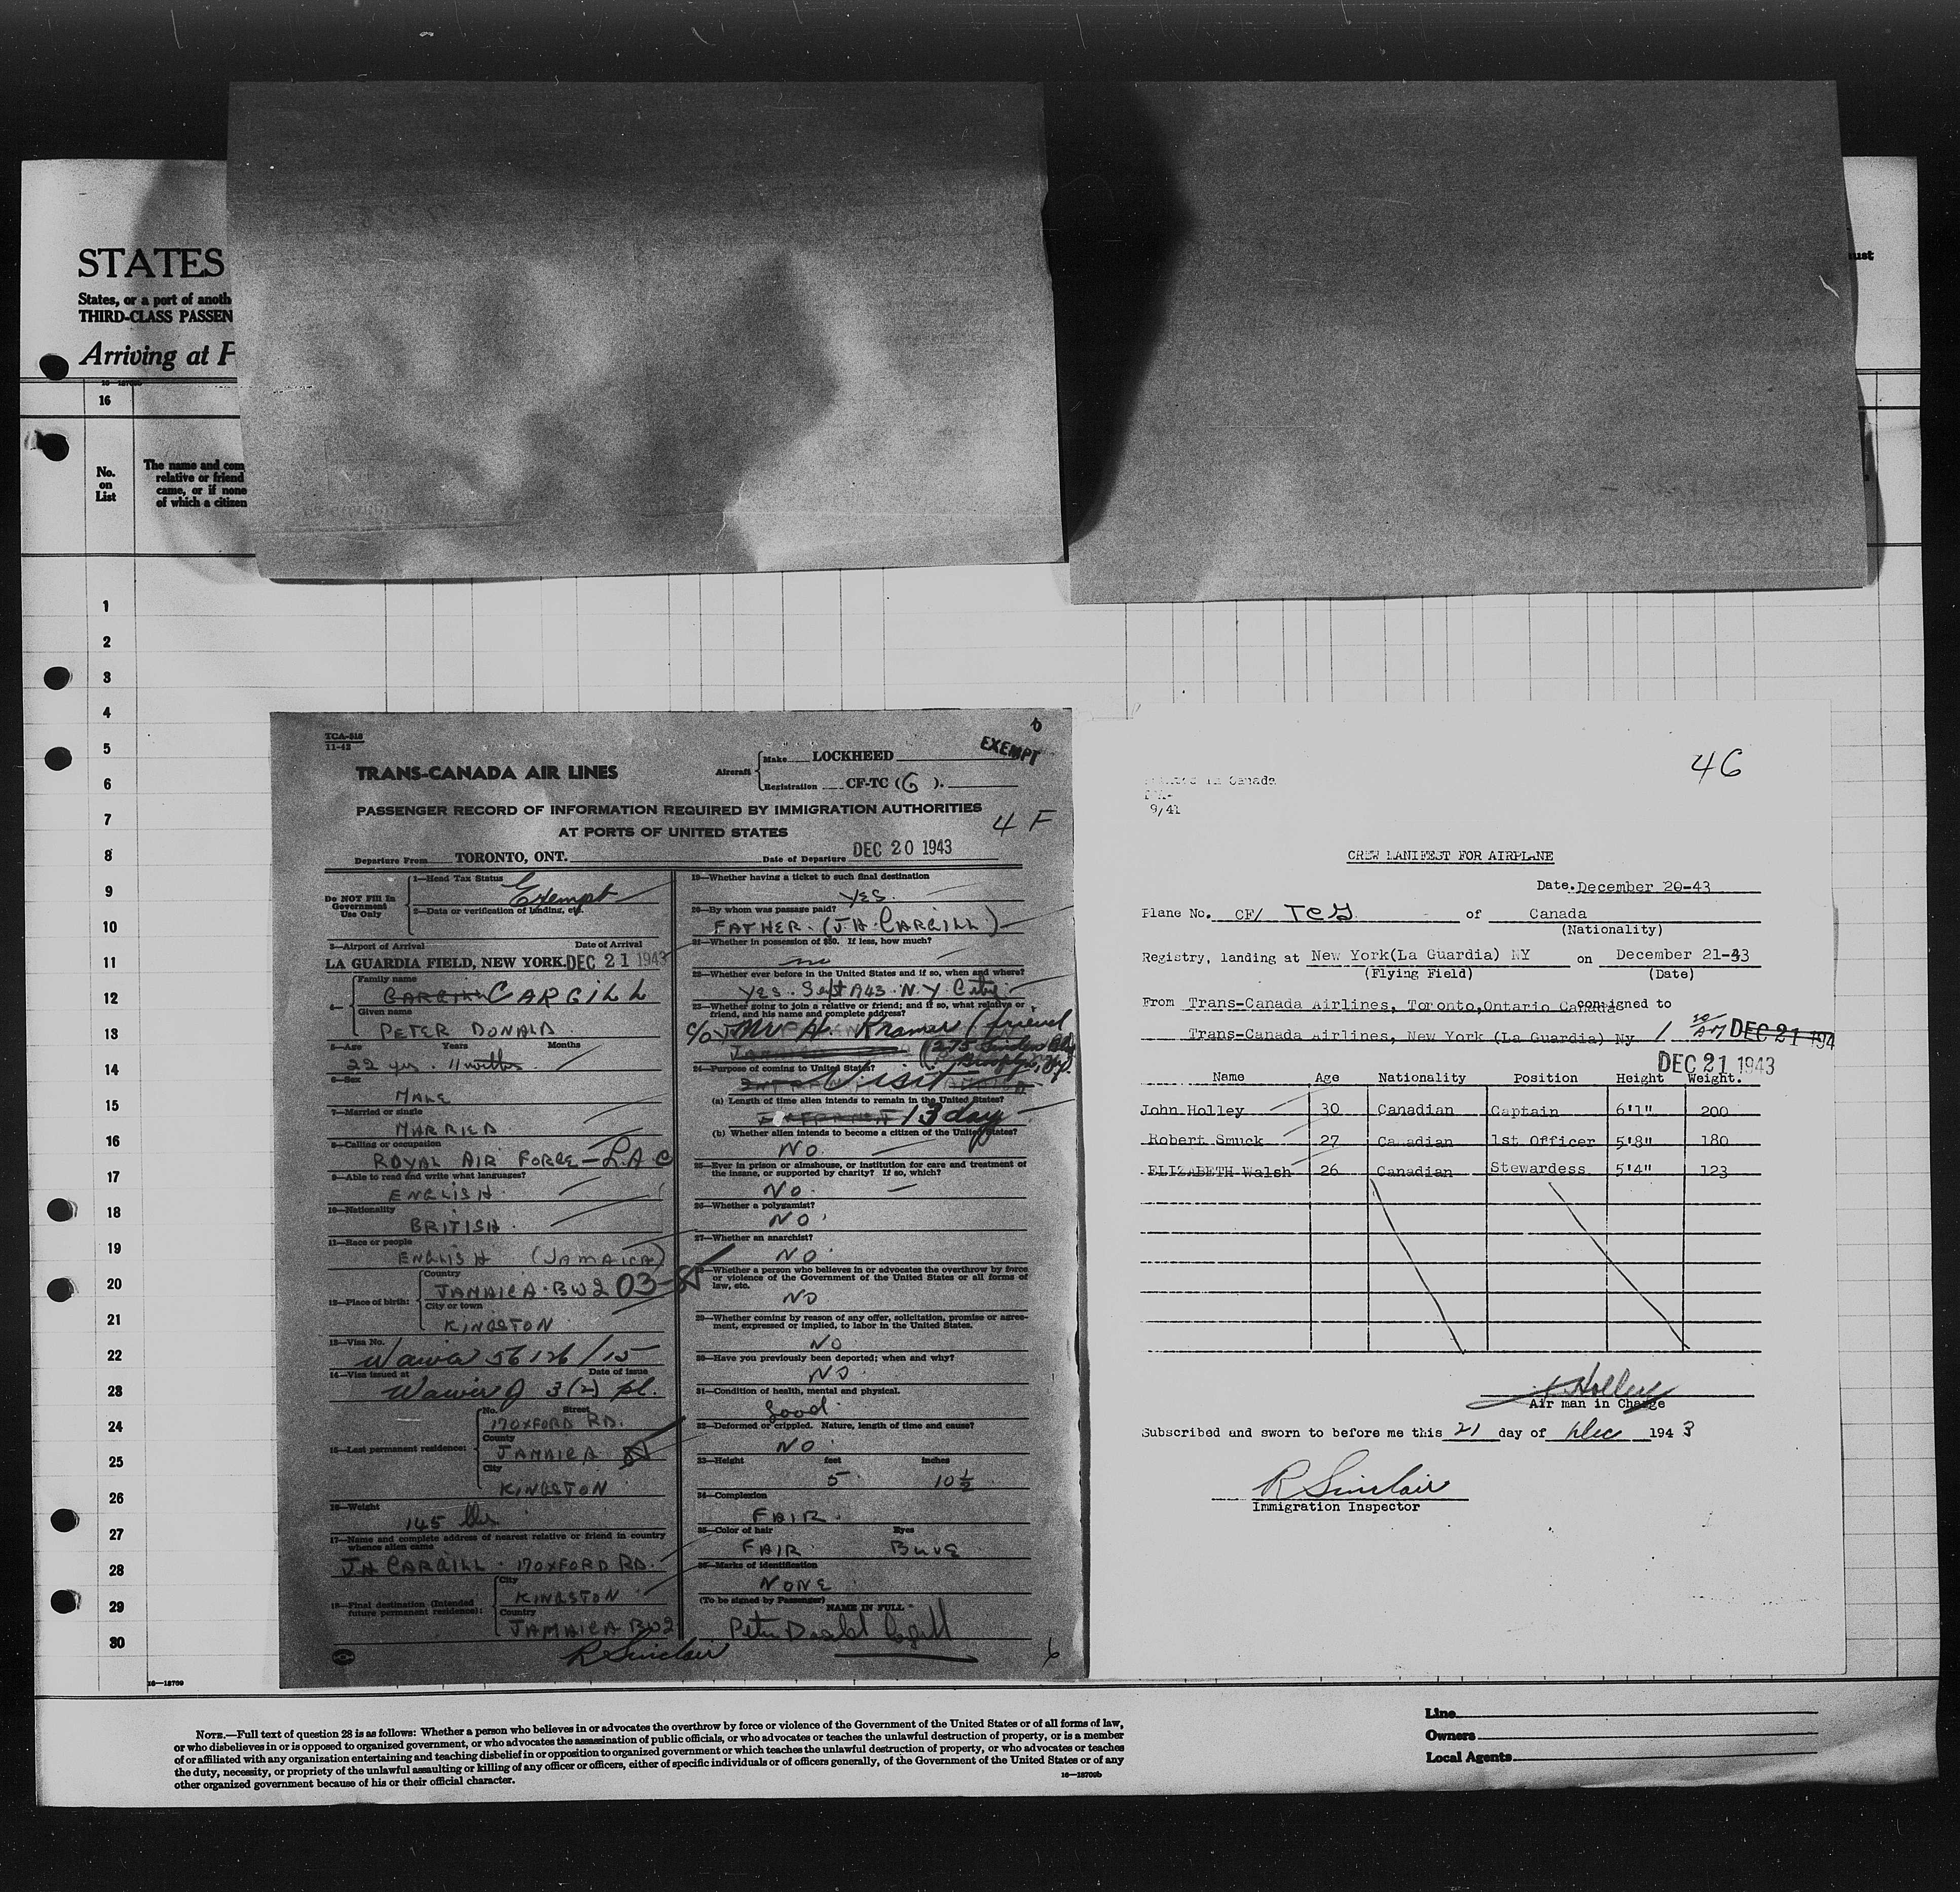 STATES
States, or a port of anoth
THIRD-CLASS PASSEN
Arriving at F
16
No.
on
List
The name and com
relative or friend
came, or if none
of which a citizen
ust
1
2
3
4
5
6
7
8
9
10
11
12
13
14
15
16
17
18
19
20
21
22
23
24
25
26
27
28
29
30
16—18709
TCA-518
11-42
EXEMPT
TRANS-CANADA AIR LINES
Aircraft Make LOCKHEED
Registration CF-TC (G).
PASSENGER RECORD OF INFORMATION REQUIRED BY IMMIGRATION AUTHORITIES
AT PORTS OF UNITED STATES
4 F
Departure From TORONTO, ONT. Date of Departure DEC 20 1943
Do NOT Fill In
Government
Use Only
1—Head Tax Status Exempt
2—Data or verification of landing, etc.
3—Airport of Arrival Date of Arrival
LA GUARDIA FIELD, NEW YORK. DEC 21 1943
4— Family name
CARGILL CARGILL
Given name
PETER DONALD
5—Age Years Months
22 yrs. 11 months
6—Sex
MALE
7—Married or single
MARRIED
8—Calling or occupation
ROYAL AIR FORCE — L.A.C
9—Able to read and write what languages?
ENGLISH
10—Nationality
BRITISH
11—Race or people
ENGLISH (JAMAICA)
12—Place of birth:
Country
JAMAICA. BWI 03-
City or town
KINGSTON
13—Visa No.
56126/15
14—Visa issued at Date of issue
3(2) pl.
15—Last permanent residence:
No. Street
17 OXFORD RD.
County
JAMAICA
City
KINGSTON
16—Weight
145 lbs
17—Name and complete address of nearest relative or friend in country
whence alien came
J.H. CARGILL. 17 OXFORD RD.
18—Final destination (Intended
future permanent residence):
City
KINGSTON
Country
JAMAICA BWI
R Sinclair
19—Whether having a ticket to such final destination
YES
20—By whom was passage paid?
FATHER. (J.H. CARGILL)
21—Whether in possession of $50. If less, how much?
no
22—Whether ever before in the United States and if so, when and where?
YES. Sept 1943. N.Y. City
23—Whether going to join a relative or friend; and if so, what relative or
friend, and his name and complete address?
c/o Mr H. Kramer (friend
275 Linden Blv
Brooklyn, N.Y.
24—Purpose of coming to United States?
Visit
(a) Length of time alien intends to remain in the United States?
13 day
(b) Whether alien intends to become a citizen of the United States?
NO.
25—Ever in prison or almshouse, or institution for care and treatment of
the insane, or supported by charity? If so, which?
NO.
26—Whether a polygamist?
NO.
27—Whether an anarchist?
NO.
28—Whether a person who believes in or advocates the overthrow by force
or violence of the Government of the United States or all forms of
law, etc.
NO
29—Whether coming by reason of any offer, solicitation, promise or agree-
ment, expressed or implied, to labor in the United States.
NO
30—Have you previously been deported; when and why?
NO.
31—Condition of health, mental and physical.
Good.
32—Deformed or crippled. Nature, length of time and cause?
NO.
33—Height feet inches
5 10 1/2
34—Complexion
FAIR.
35—Color of hair Eyes
FAIR BLUE
36—Marks of identification
NONE
(To be signed by Passenger) NAME IN FULL
Peter Donald Cargill
6
46
Printed in Canada
9/41
CREW MANIFEST FOR AIRPLANE
Date. December 20-43
Plane No. CF/ TCG of Canada
(Nationality)
Registry, landing at New York(La Guardia) NY on December 21-43
(Flying Field) (Date)
From Trans-Canada Airlines, Toronto,Ontario Canada consigned to
Trans-Canada Airlines, New York (La Guardia) Ny. 1 AM DEC 21 194
DEC 21 1943
Name Age Nationality Position Height Weight.
John Holley 30 Canadian Captain 6'1" 200
Robert Smuck 27 Canadian 1st Officer 5'8" 180
ELIZABETH Walsh 26 Canadian Stewardess 5'4" 123
Holley
Air man in Charge
Subscribed and sworn to before me this 21 day of Dec 1943
R Sinclair
Immigration Inspector
NOTE.—Full text of question 28 is as follows: Whether a person who believes in or advocates the overthrow by force or violence of the Government of the United States or of all forms of law,
or who disbelieves in or is opposed to organized government, or who advocates the assassination of public officials, or who advocates or teaches the unlawful destruction of property, or is a member
of or affiliated with any organization entertaining and teaching disbelief in or opposition to organized government or which teaches the unlawful destruction of property, or who advocates or teaches
the duty, necessity, or propriety of the unlawful assaulting or killing of any officer or officers, either of specific individuals or of officers generally, of the Government of the United States or of any
other organized government because of his or their official character.
16—18709b
Line
Owners
Local Agents